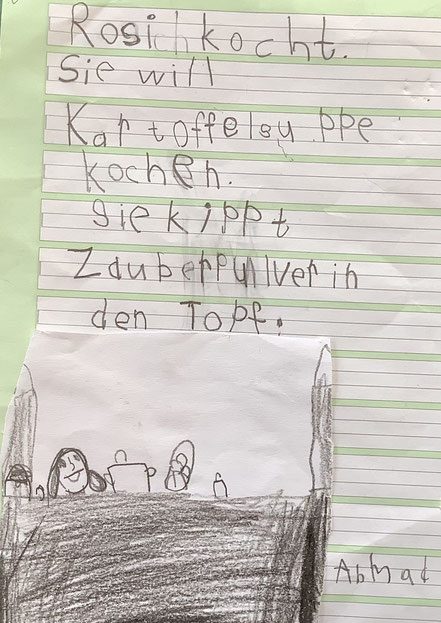 Rosi kocht.
Sie will
Kartoffelsuppe
kochen.
Sie kippt
Zauberpulver in
den Topf.